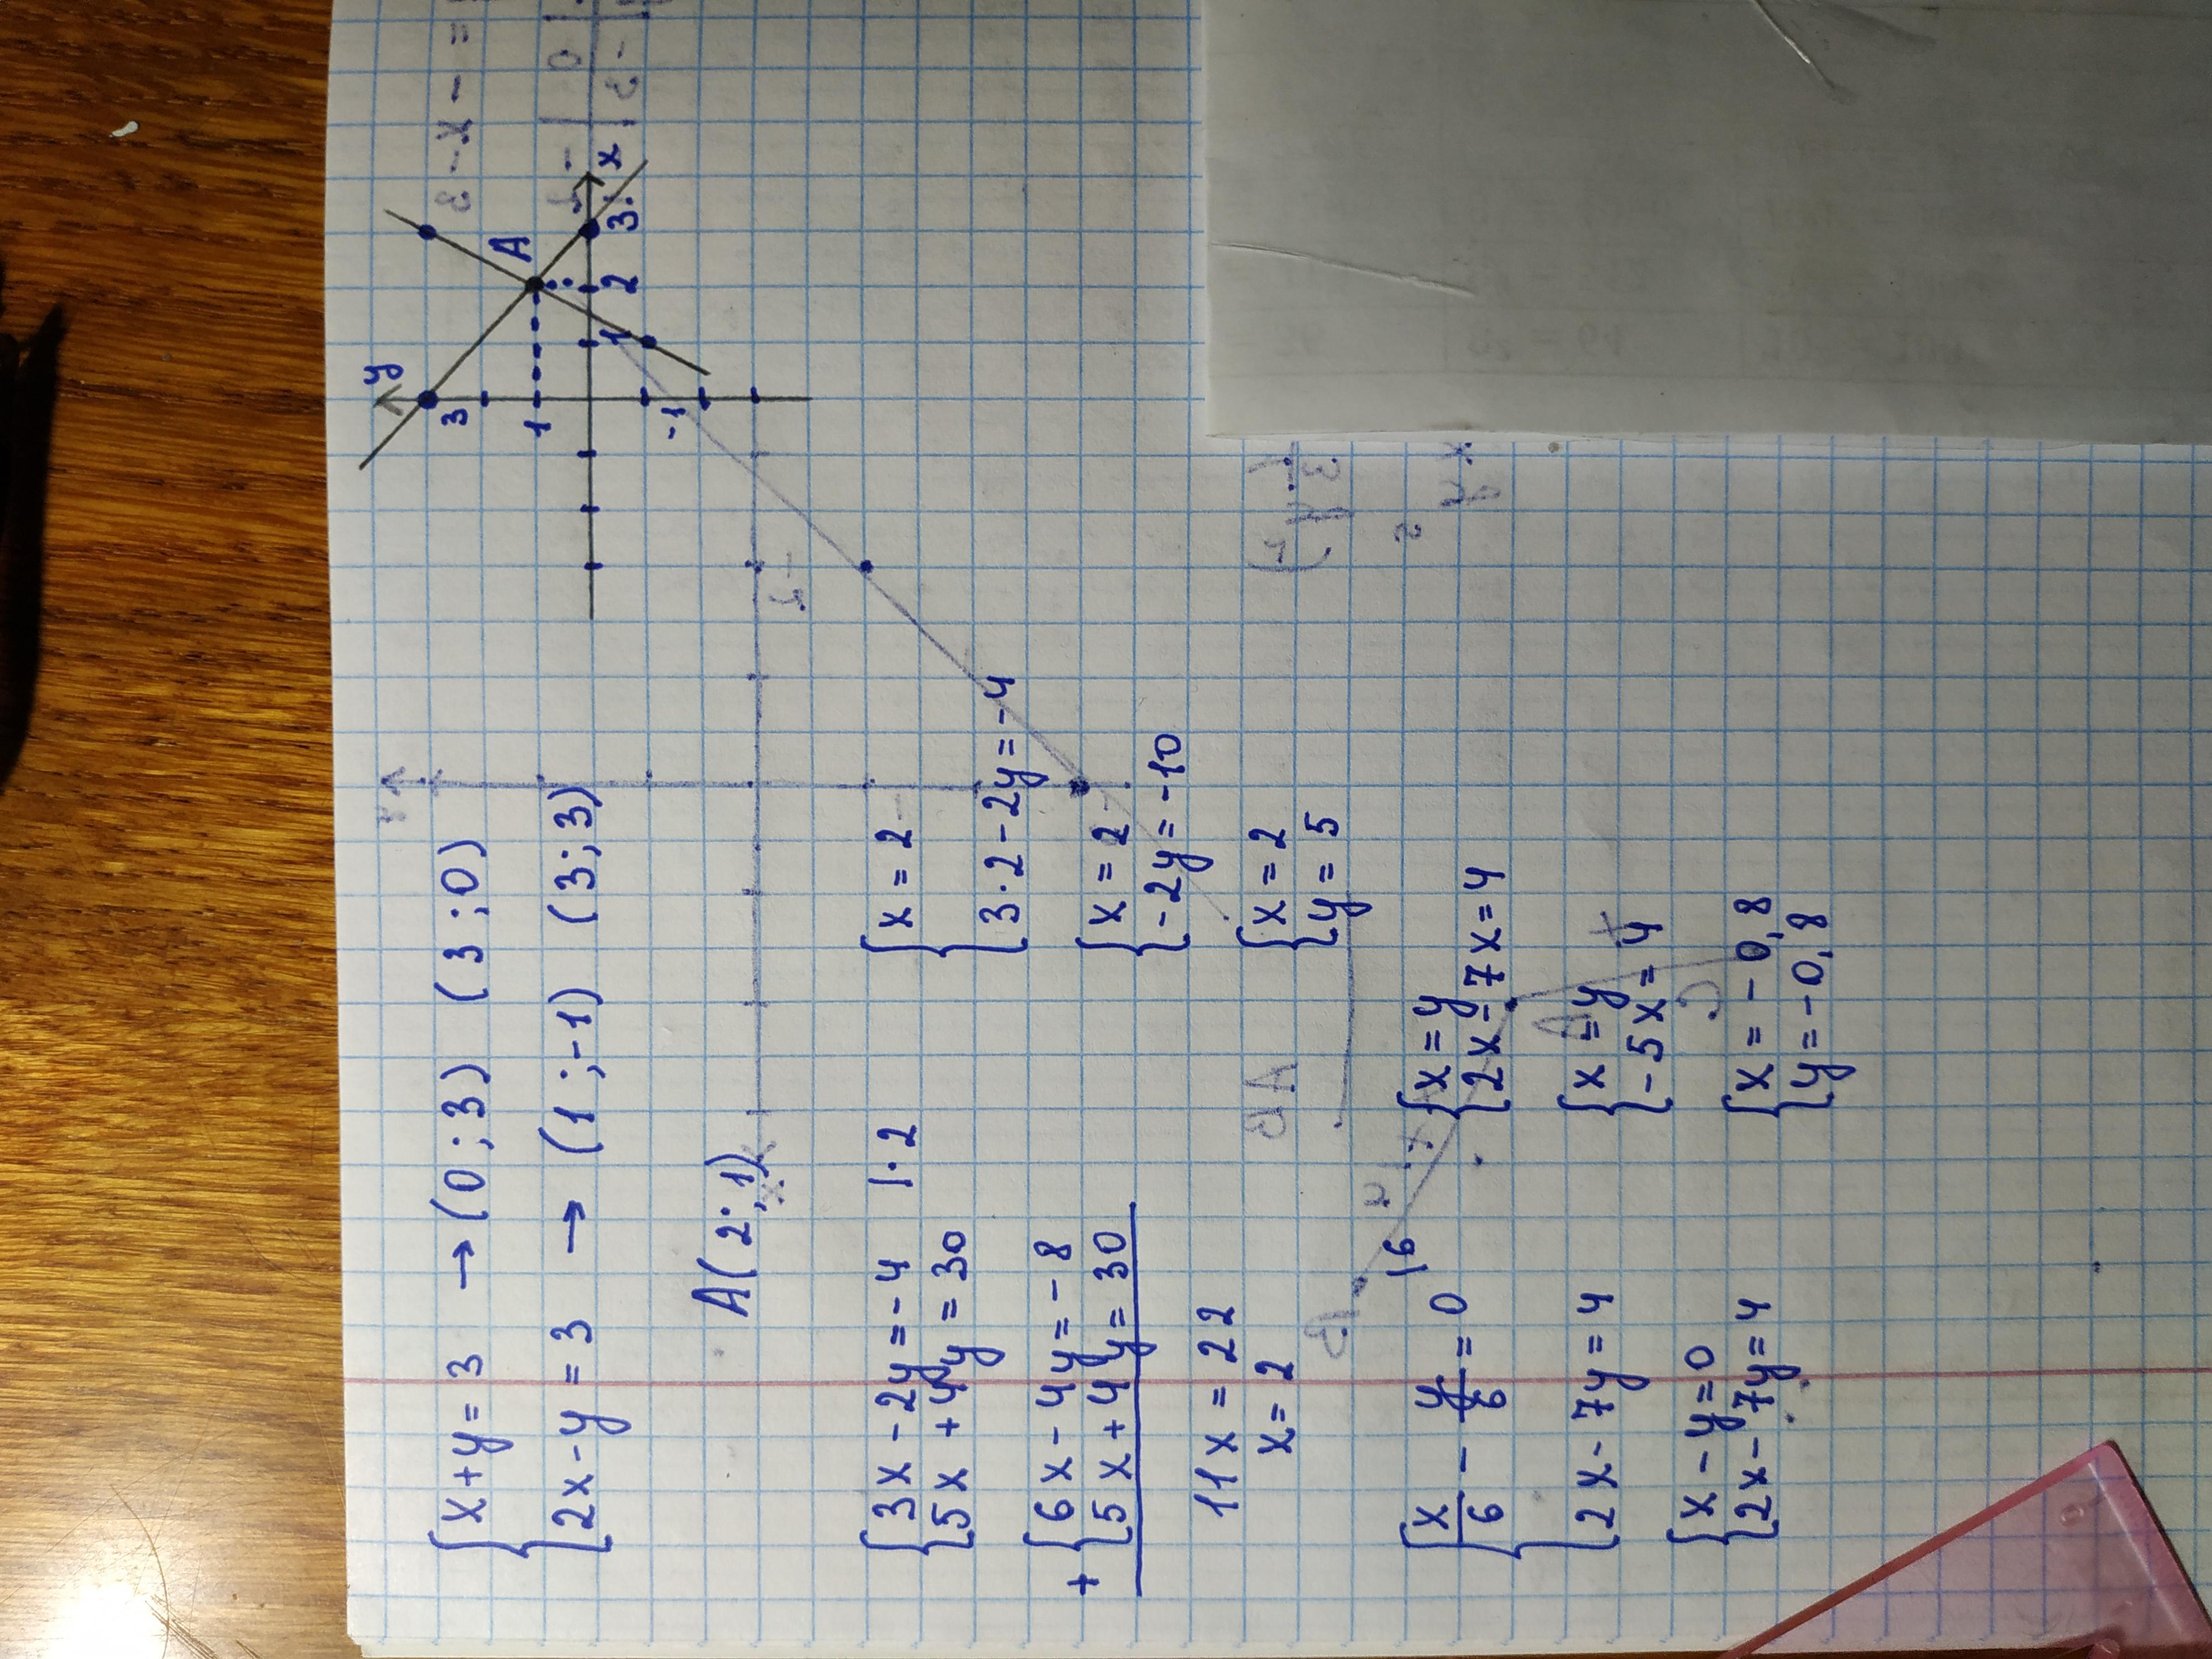 { x + y = 3 → (0 ; 3) (3 ; 0)
{ 2x - y = 3 → (1 ; -1) (3 ; 3)
A(2 ; 1)
y
3
A
1
1 2 3 x
-1
{ 3x - 2y = -4 | · 2
{ 5x + 4y = 30
+ { 6x - 4y = -8
{ 5x + 4y = 30
11x = 22
x = 2
{ x = 2
{ 3 · 2 - 2y = -4
{ x = 2
{ -2y = -10
{ x = 2
{ y = 5
{ x/6 - y/6 = 0 | 6
{ 2x - 7y = 4
{ x - y = 0
{ 2x - 7y = 4
{ x = y
{ 2x - 7x = 4
{ x = y
{ -5x = 4
{ x = -0,8
{ y = -0,8